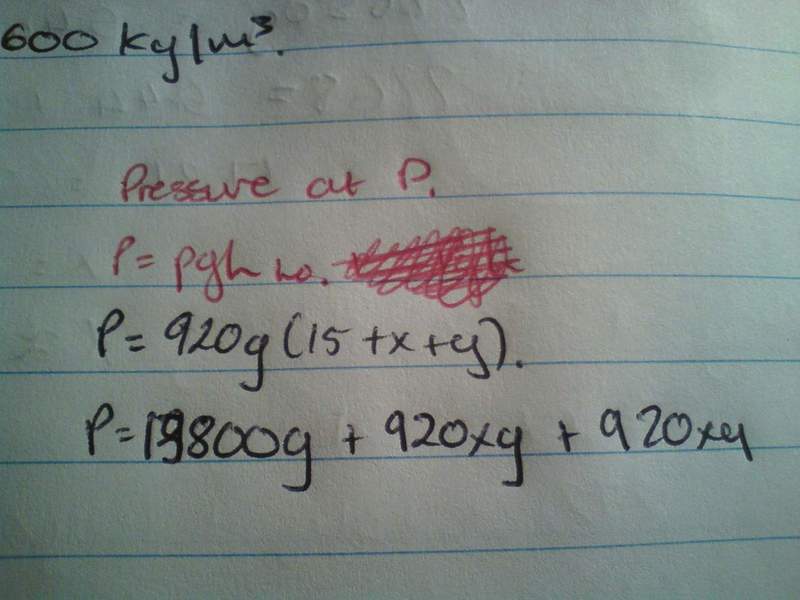 600 kg/m³.
Pressure at P.
P = ρgh
P = 920g (15 + x + y).
P = 13800g + 920xg + 920xy